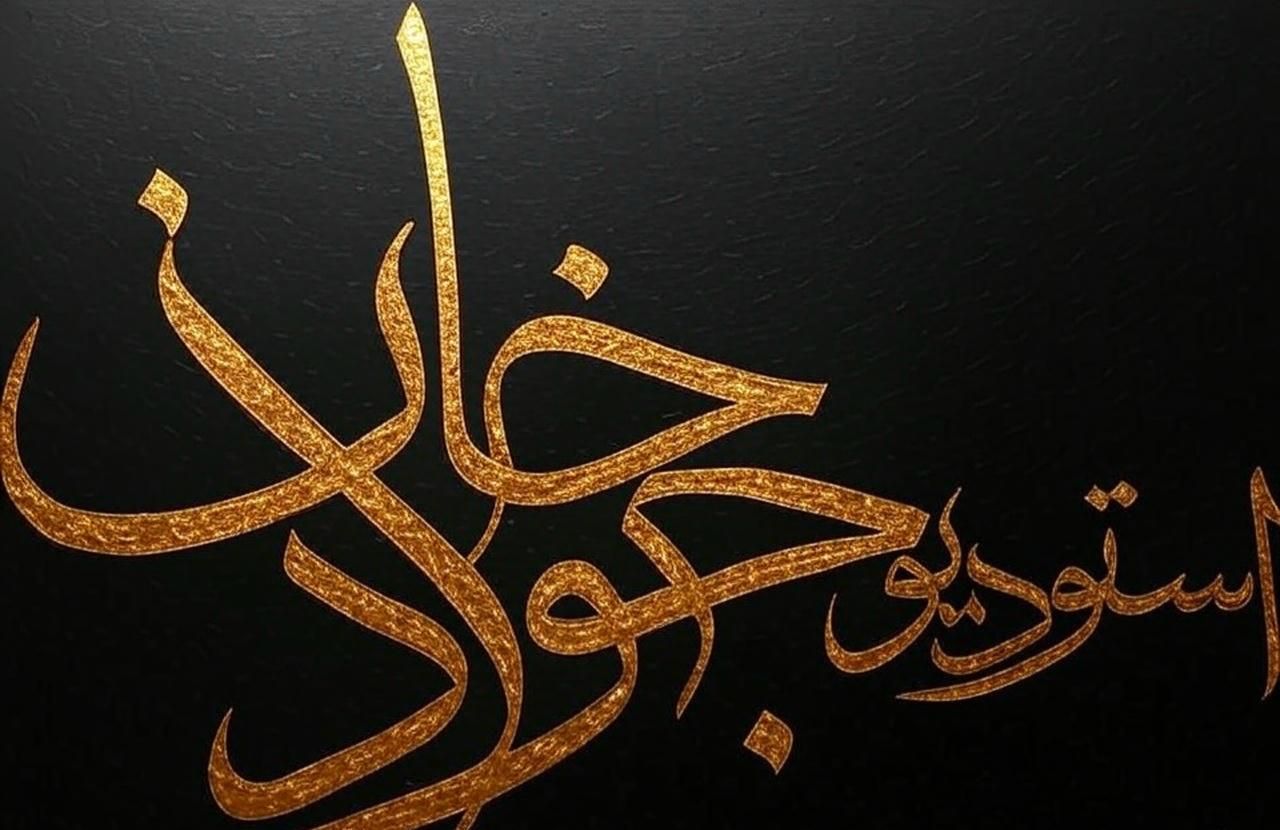 استوديو
جواد خان